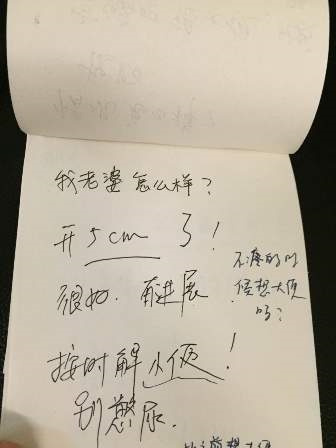 我老婆怎么样?
开5cm了!
很好.有进展
不疼的时
候想大便
吗?
按时解小便!
别憋尿.
想大便